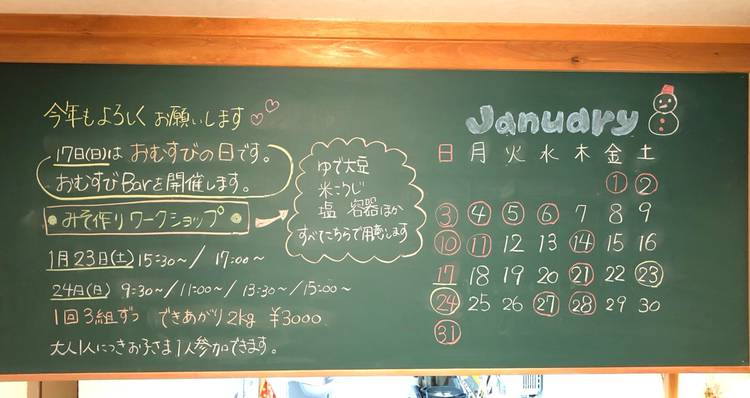 今年もよろしくお願いします
17日(日)はおむすびの日です。
おむすびBarを開催します。
みそ作りワークショップ
1月23日(土) 15:30〜/ 17:00〜
24日(日) 9:30〜/11:00〜/ 13:30〜/15:00〜
1回3組ずつ できあがり2kg ¥3000
大人1人につきお子さま1人参加できます。
ゆで大豆
米こうじ
塩 容器ほか
すべてこちらで用意します
January
日 月 火 水 木 金 土
1 2
3 4 5 6 7 8 9
10 11 12 13 14 15 16
17 18 19 20 21 22 23
24 25 26 27 28 29 30
31